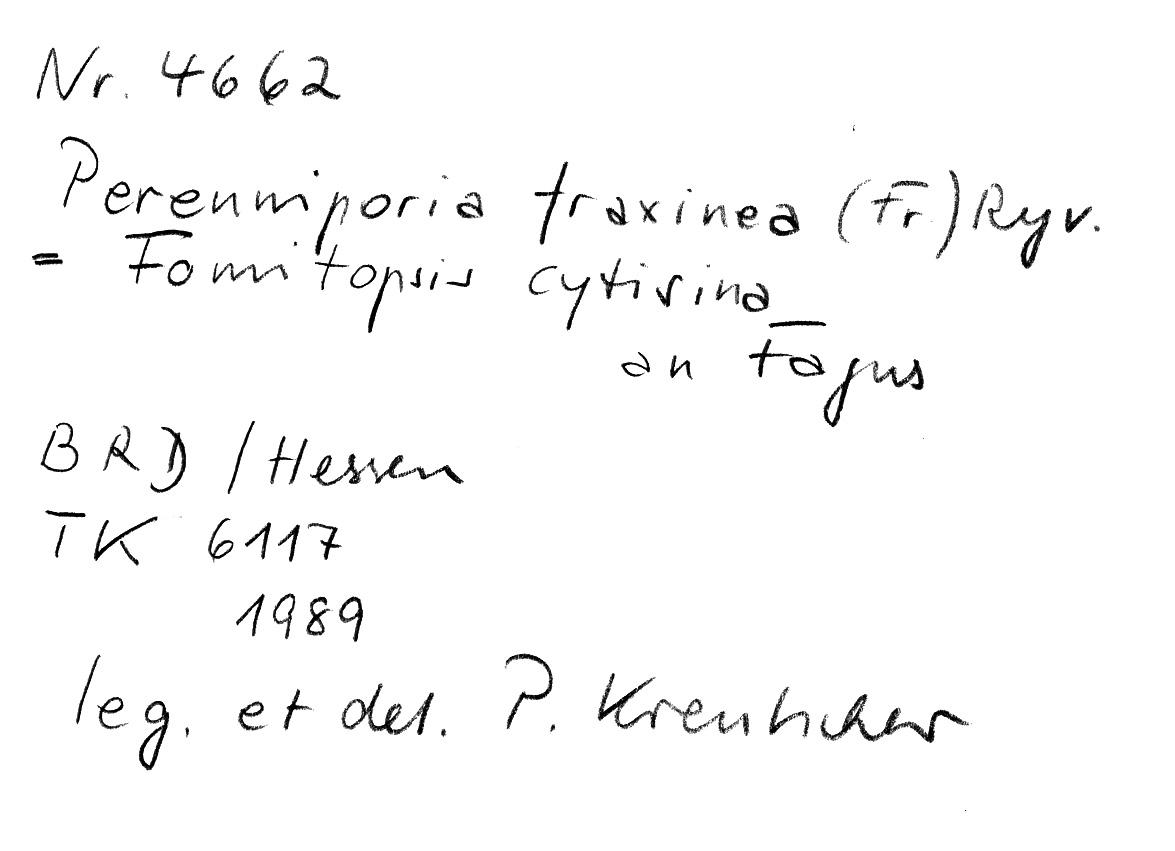 Nr. 4662
Perenniporia fraxinea (Fr.) Ryv.
= Fomitopsis cytisina
an Fagus
BRD / Hessen
TK 6117
1989
leg. et det. P.